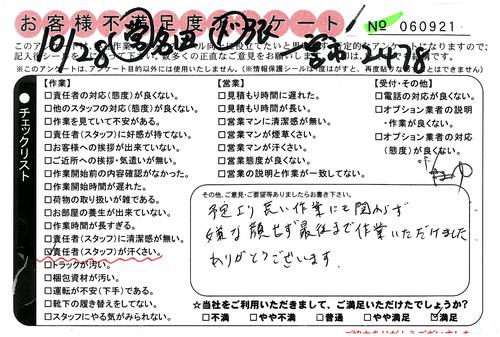 お客様不満足度アンケート
No 060921
10/28
2478
記入後シールを
数多くの正直なご意見をお願い
(※このアンケートは、アンケート目的以外には使用いたしません。)(※情報保護シールは一度はがすと、再度貼りなおすことはできません)
チェックリスト
【作業】
□責任者の対応(態度)が良くない。
□他のスタッフの対応(態度)が良くない。
□作業を見ていて不安がある。
□責任者(スタッフ)に好感が持てない。
□お客様への挨拶が出来ていない。
□ご近所への挨拶・気遣いが無い。
□作業開始前の内容確認がなかった。
□作業開始時間が遅れた。
□荷物の取り扱いが雑である。
□お部屋の養生が出来ていない。
□作業時間が長すぎる。
□責任者(スタッフ)に清潔感が無い。
☑責任者(スタッフ)が汗くさい。
□トラックが汚い。
□梱包資材が汚い。
□運転が不安(下手)である。
□靴下の履き替えをしてない。
□スタッフにやる気がみられない。
【営業】
□見積もり時間に遅れた。
□見積もり時間が長い。
□営業マンに清潔感が無い。
□営業マンが煙草くさい。
□営業マンが汗くさい。
□営業態度が良くない。
□営業の説明と作業が一致してない。
【受付・その他】
□電話の対応が良くない。
□オプション業者の説明
・作業が良くない。
□オプション業者の対応
(態度)が良くない。
その他、ご意見・ご要望等ありましたらお書き下さい。
予定より長い作業にも関わらず
嫌な顔せず最後まで作業いただけました
ありがとうございます。
☆当社をご利用いただきまして、ご満足いただけたでしょうか?
□不満 □やや不満 □普通 □やや満足 ☑満足